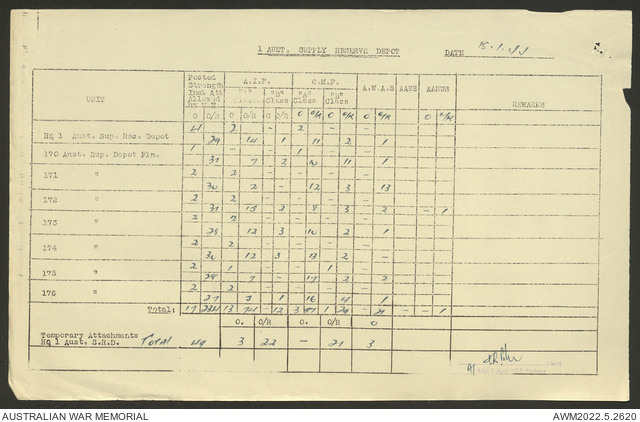 1 AUST. SUPPLY RESERVE DEPOT DATE
UNIT Posted Strength A.I.F. C.M.F. A.W.A.S AANS AAMWS REMARKS
"A" Class "B" Class "A" Class "B" Class
O O/R O O/R O O/R O O/R O O/R O O/R
4 2 - 2 -
HQ 1 Aust. Sup. Res. Depot 29 14 1 11 2 1
1 - - 1 -
170 Aust. Sup. Depot Pln. 31 7 2 10 11 1
2 2 - - -
171 " 30 2 - 12 3 13
2 2 - - -
172 " 31 15 2 9 3 2 - 1
2 2 - - -
173 " 29 12 3 10 2 1
2 2 - - -
174 " 30 12 3 13 2 -
2 1 - - 1 -
175 " 29 7 - 17 2 2
2 2 - - -
176 " 27 5 1 16 4 1
Total: 17 234 13 74 - 12 3 97 1 29 - 21 - - 1
O. O/R O. O/R O
Temporary Attachments
HQ 1 Aust. S.R.D. Total 49 3 22 - 21 3
AUSTRALIAN WAR MEMORIAL AWM2022.5.2620